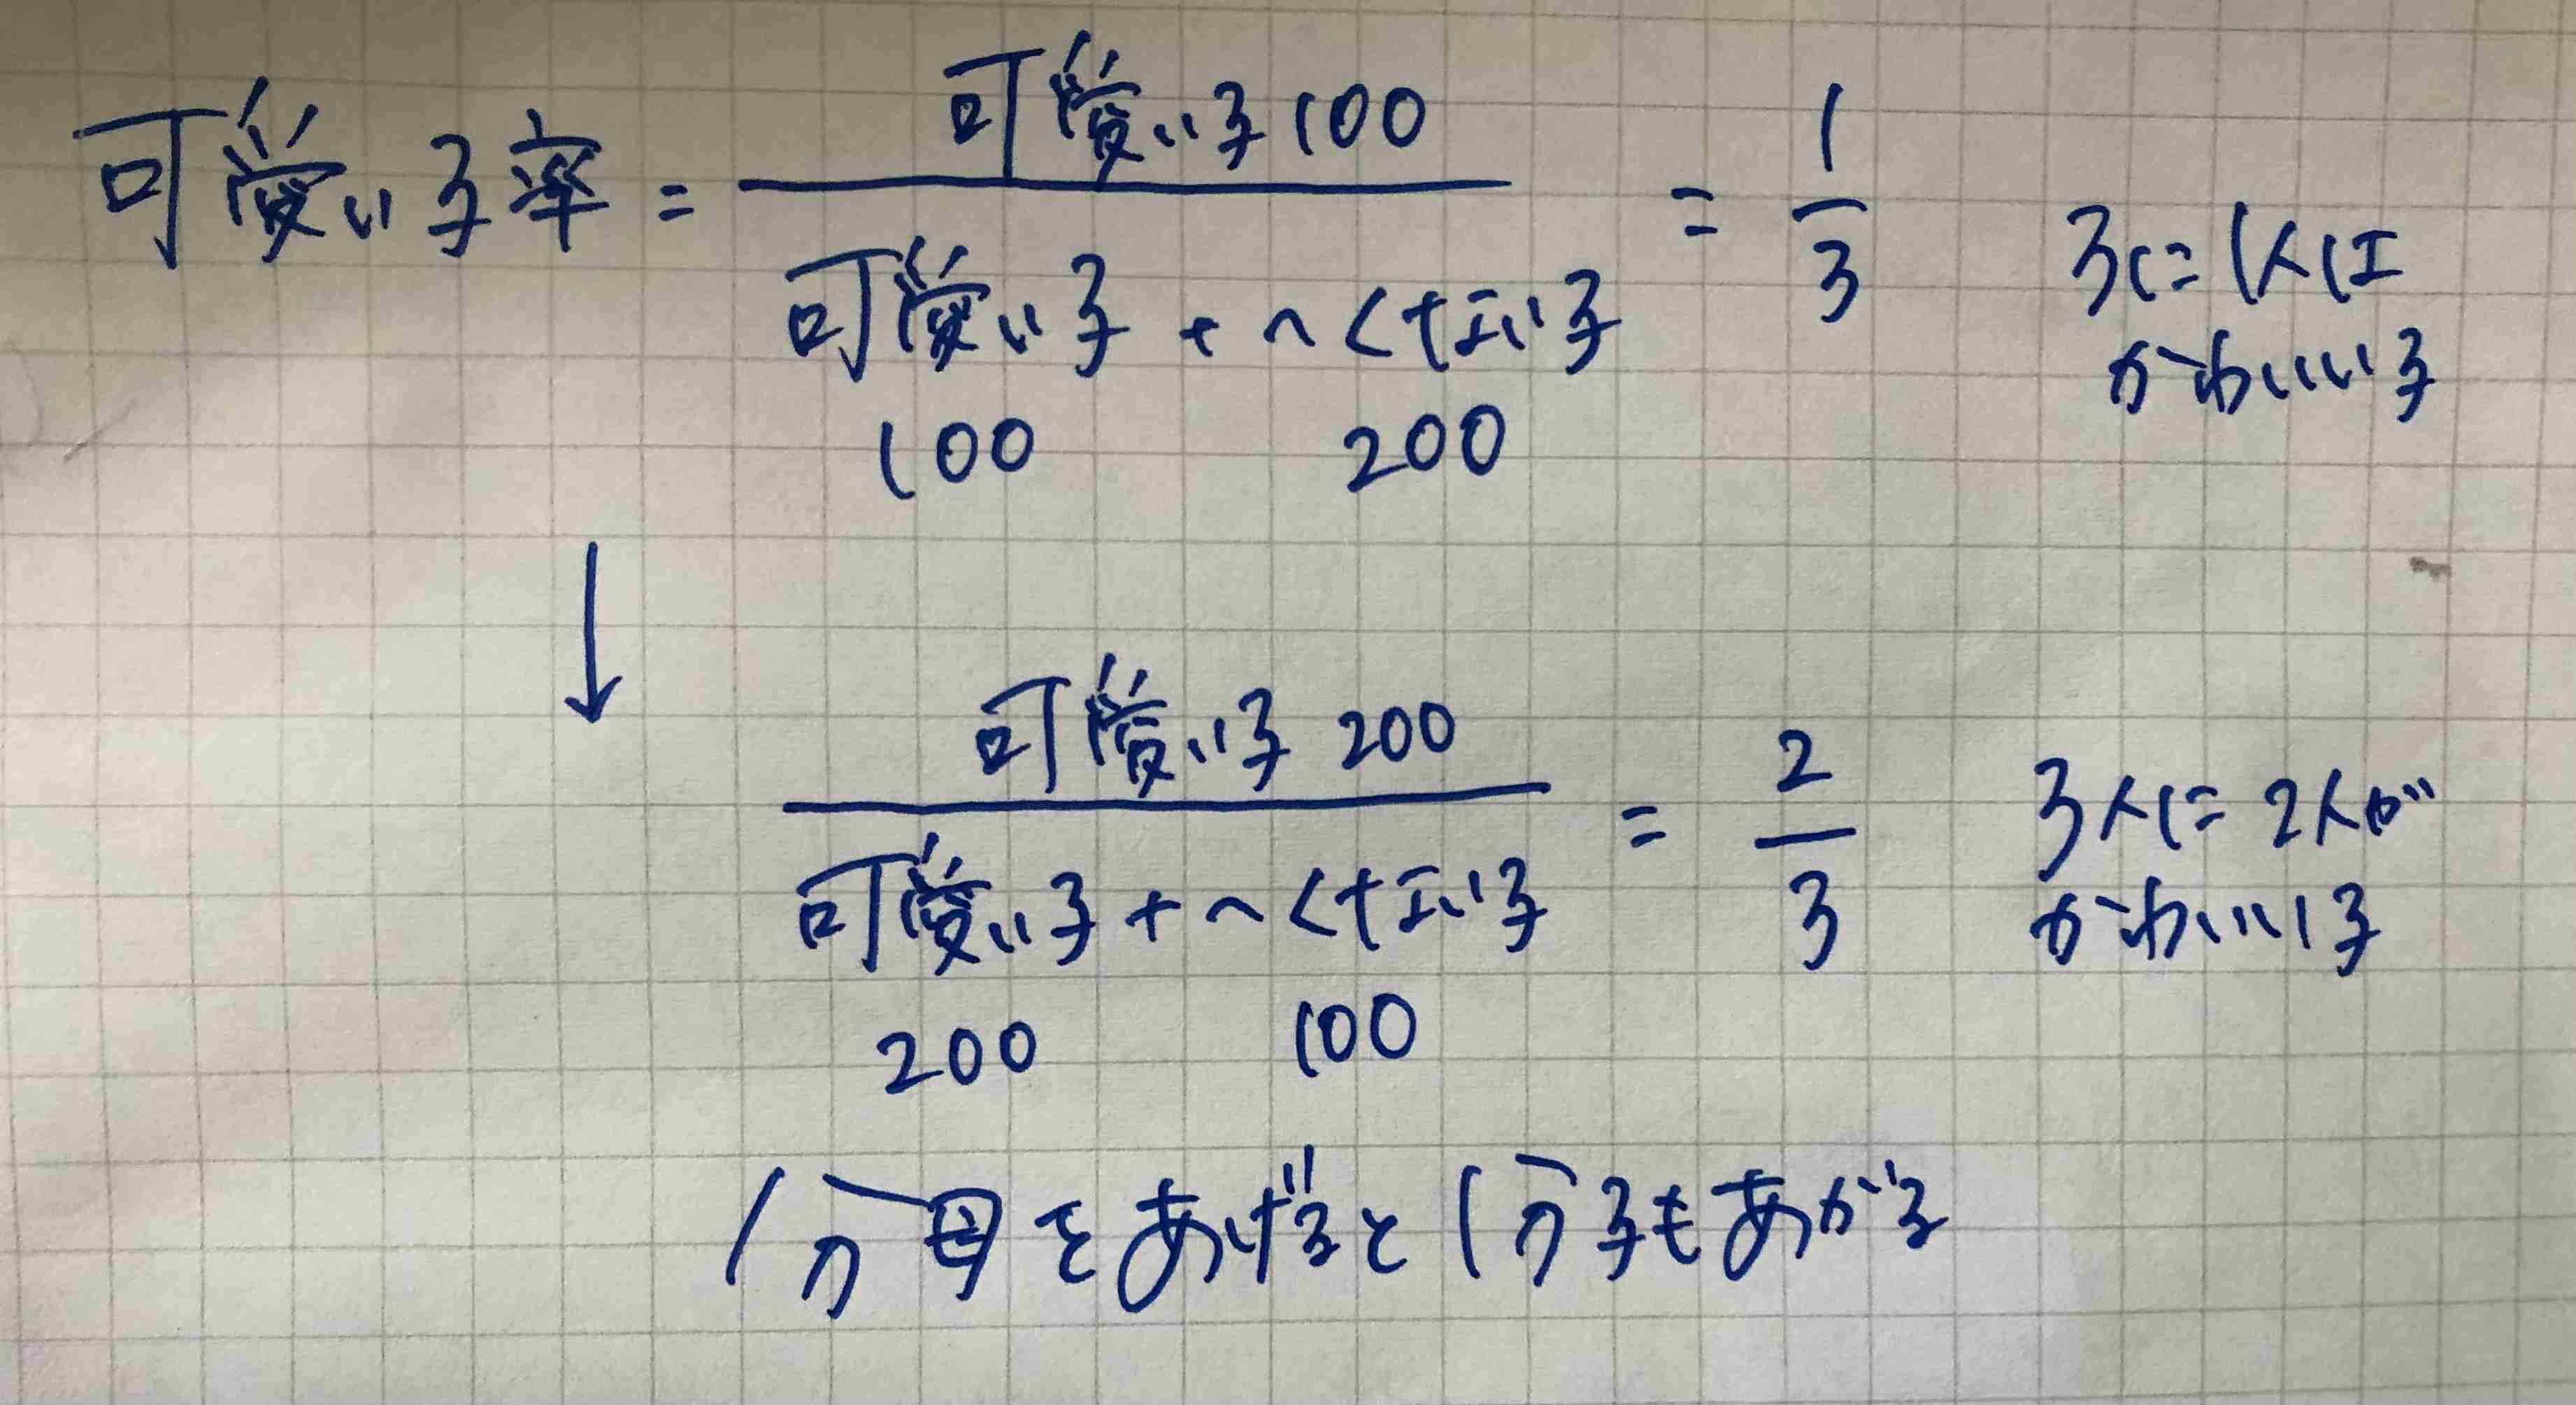 可愛い子率 = 可愛い子100 / 可愛い子 + 〜くない子 = 1/3
100 200
3に1人は
かわいい子
↓
可愛い子 200 / 可愛い子 + 〜くない子 = 2/3
200 100
3人に2人が
かわいい子
分母をあげると分子もあがる